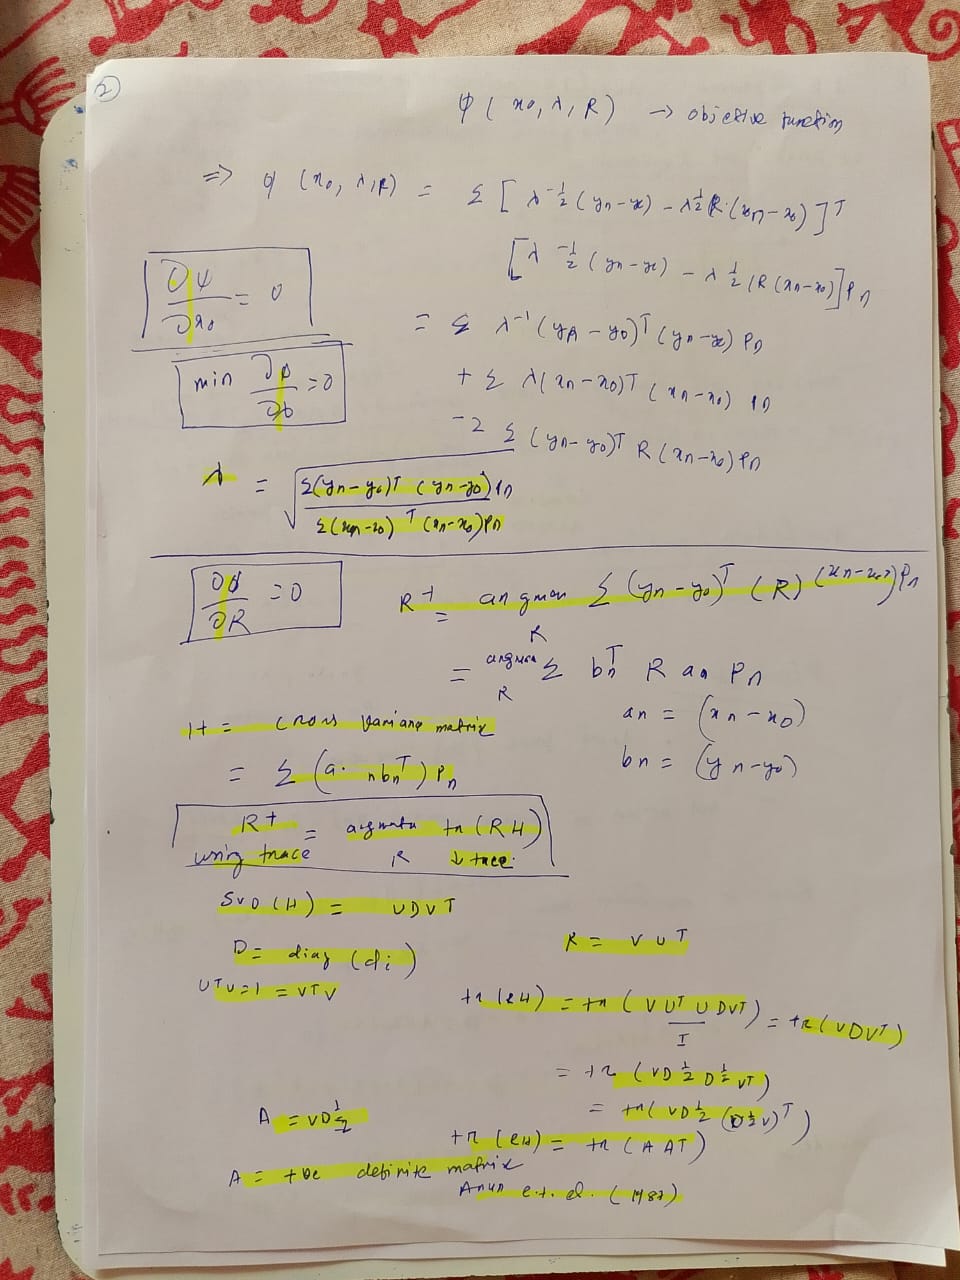 2
φ ( x0, λ, R ) → objective function
=> φ (x0, λ, R) = Σ [ λ^-1/2 (yn - y0) - λ^1/2 R (xn - x0) ]^T
[ λ^-1/2 (yn - y0) - λ^1/2 (R (xn - x0) ] Pn
∂ψ/∂x0 = 0
= Σ λ^-1 (yn - y0)^T (yn - y0) Pn
min ∂φ/∂λ = 0
+ Σ λ (xn - x0)^T (xn - x0) Pn
-2 Σ (yn - y0)^T R (xn - x0) Pn
λ = √( Σ (yn - y0)^T (yn - y0) Pn / Σ (xn - x0)^T (xn - x0) Pn )
∂φ/∂R = 0
R+ = argmax Σ (yn - y0)^T (R) (xn - x0) Pn
R
= argmax Σ bn^T R an Pn
R
H = cross variance matrix
an = (xn - x0)
= Σ (a n bn^T) Pn
bn = (yn - y0)
R+ = tr (RH)
using trace R ↓ trace.
SVD (H) = UDV^T
D = diag (di)
R = V U^T
U^T U = I = V^T V
tr (RH) = tr (V U^T U D V^T) = tr (V D V^T)
I
= tr (V D^1/2 D^1/2 V^T)
A = V D^1/2
= tr (V D^1/2 (D^1/2 V)^T)
tr (RH) = tr (A A^T)
A = +ve definite matrix
Arun e.t. el. (1987)